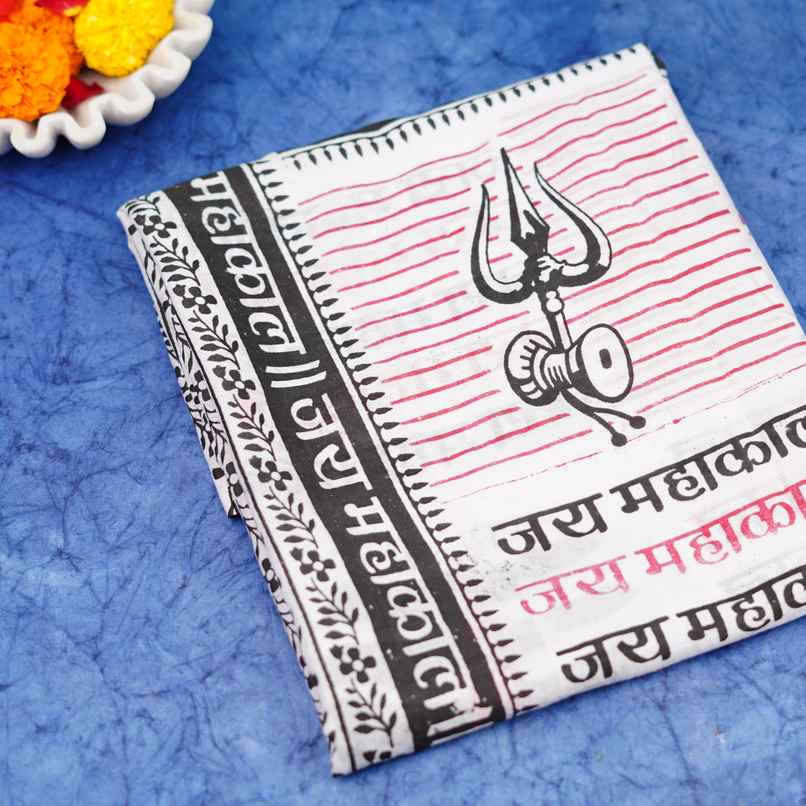 महाकाल || जय महाकाल ||
जय महाकाल
जय महाका
जय महाक